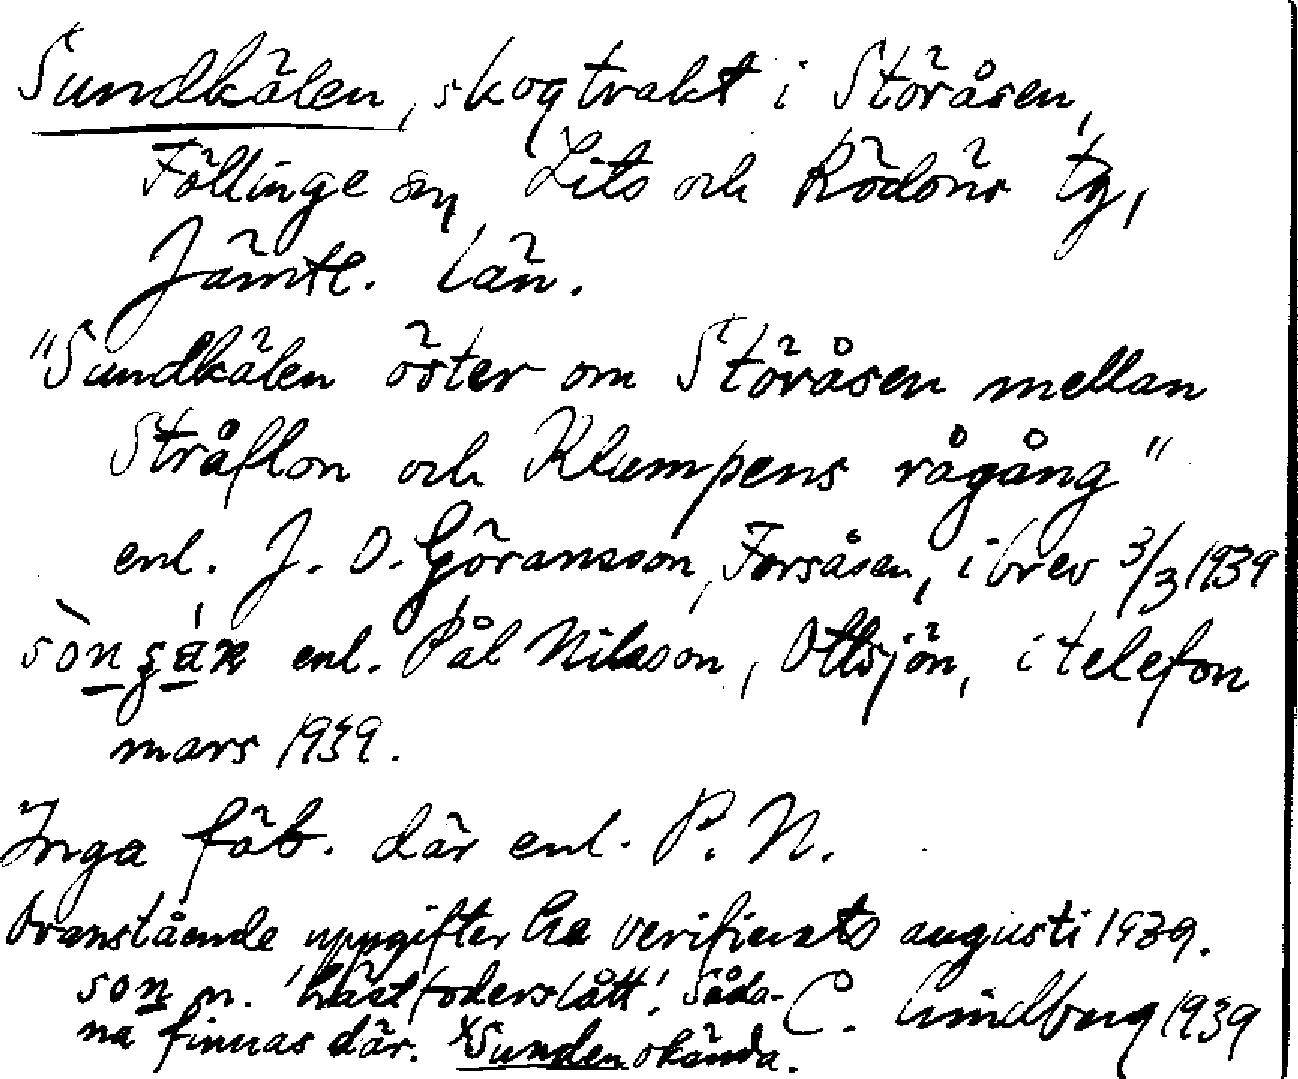 Sundkälen, skogtrakt i Störåsen,
Föllinge sn, Lits och Rödöns tg,
Jämtl. län.
"Sundkälen öster om Störåsen mellan
Stråflon och Klumpens rågång"
enl. J. O. Göransson, Forsåsen, i brev 3/3 1939
enl. Pål Nilsson, Ottsjön, i telefon
mars 1939.
Inga fäb. där enl. P. N.
Ovanstående uppgifter ha verifierats augusti 1939.
son n. 'hästfoderslått'. Såda-
na finnas där. xSunden okända.
C. Lindberg 1939